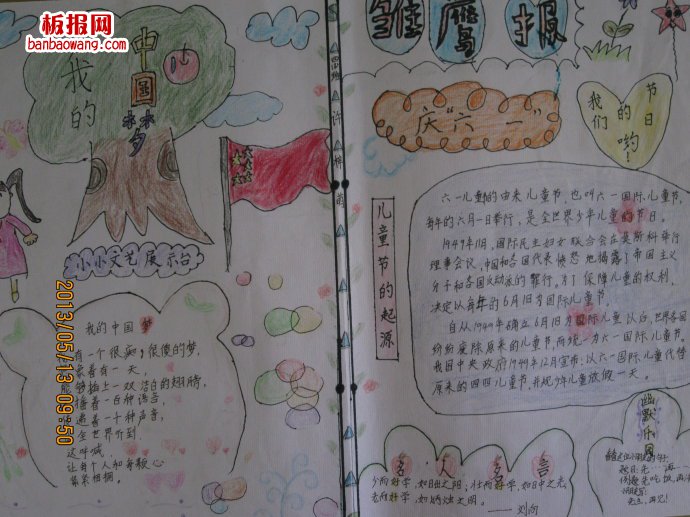 板报网
banbaowang.com
我的
中国
梦
小小文艺展示台
我的中国梦
有一个很痴，很傻的梦，
有一天，
能够插上一双洁白的翅膀，
百种语言，
一种声音，
全世界听到
这呼喊
让每个人和每颗心
紧紧相拥。
2013/05/13 09:50
雏鹰报
庆“六一”
我们的节日哟！
儿童节的起源
六一儿童节的由来儿童节，也叫六一国际儿童节，
每年的六月一日举行，是全世界少年儿童的节日。
1949年11月，国际民主妇女联合会在莫斯科举行
理事会议，中国和各国代表愤怒地揭露了帝国主义
分子和各国反动派的罪行。为了保障儿童的权利，
决定以每年的6月1日为国际儿童节。
自从1949年确立6月1日为国际儿童节以后，世界各国
纷纷废除原来的儿童节而统一为六一国际儿童节。
我国中央政府1949年12月宣布：以六一国际儿童节代替
原来的四四儿童节，并规少年儿童放假一天。
名人名言
少而好学，如日出之阳；壮而好学，如日中之光；
老而好学，如炳烛之明。
——刘向
幽默乐园